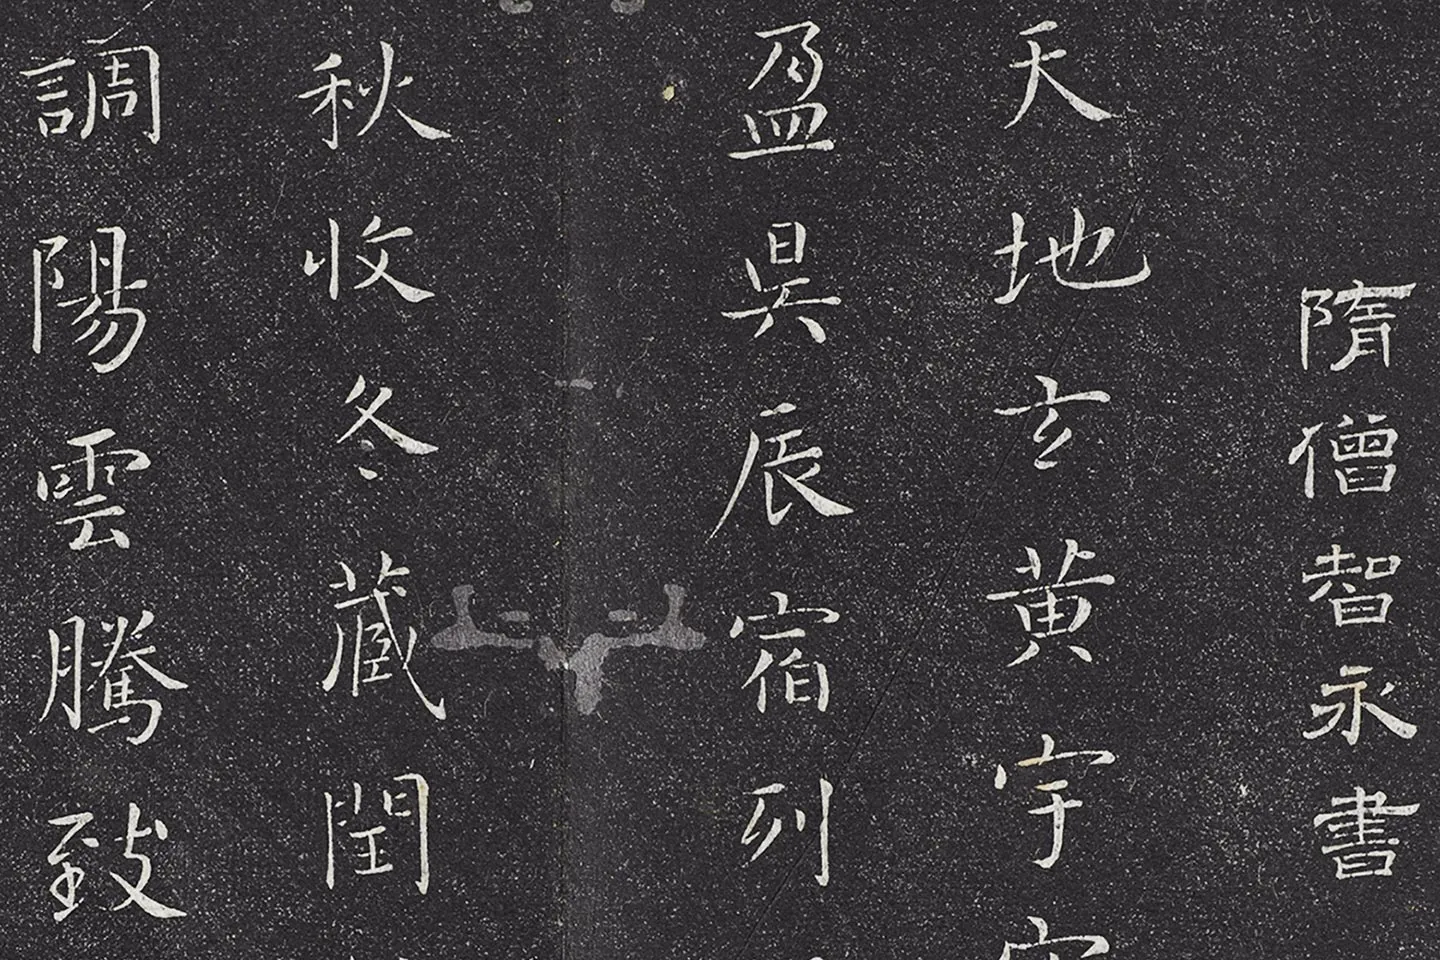 隋僧智永書
天地玄黃宇
盈昃辰宿列
秋收冬蔵閏
調陽雲騰致